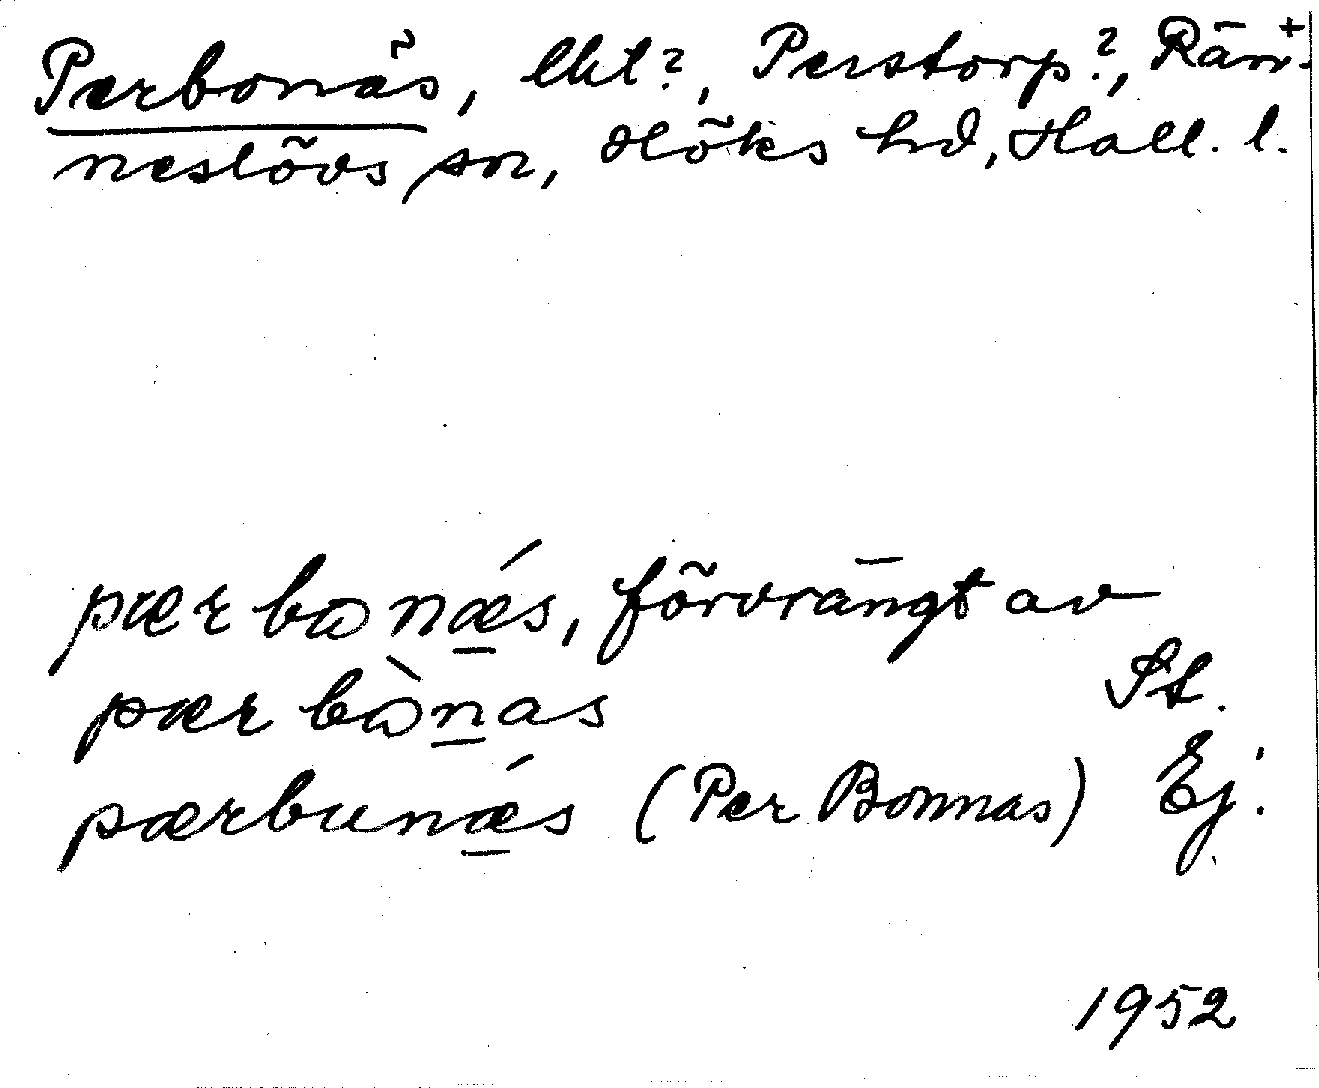 Perbonäs, lht?, Perstorp?, Rän-+
neslövs sn, Höks hd, Hall. l.
pær bɷ nǽs, förvrängt av
pær bɷ̀nas St.
pærbunǽs (Per Bonnas) Ej.
1952